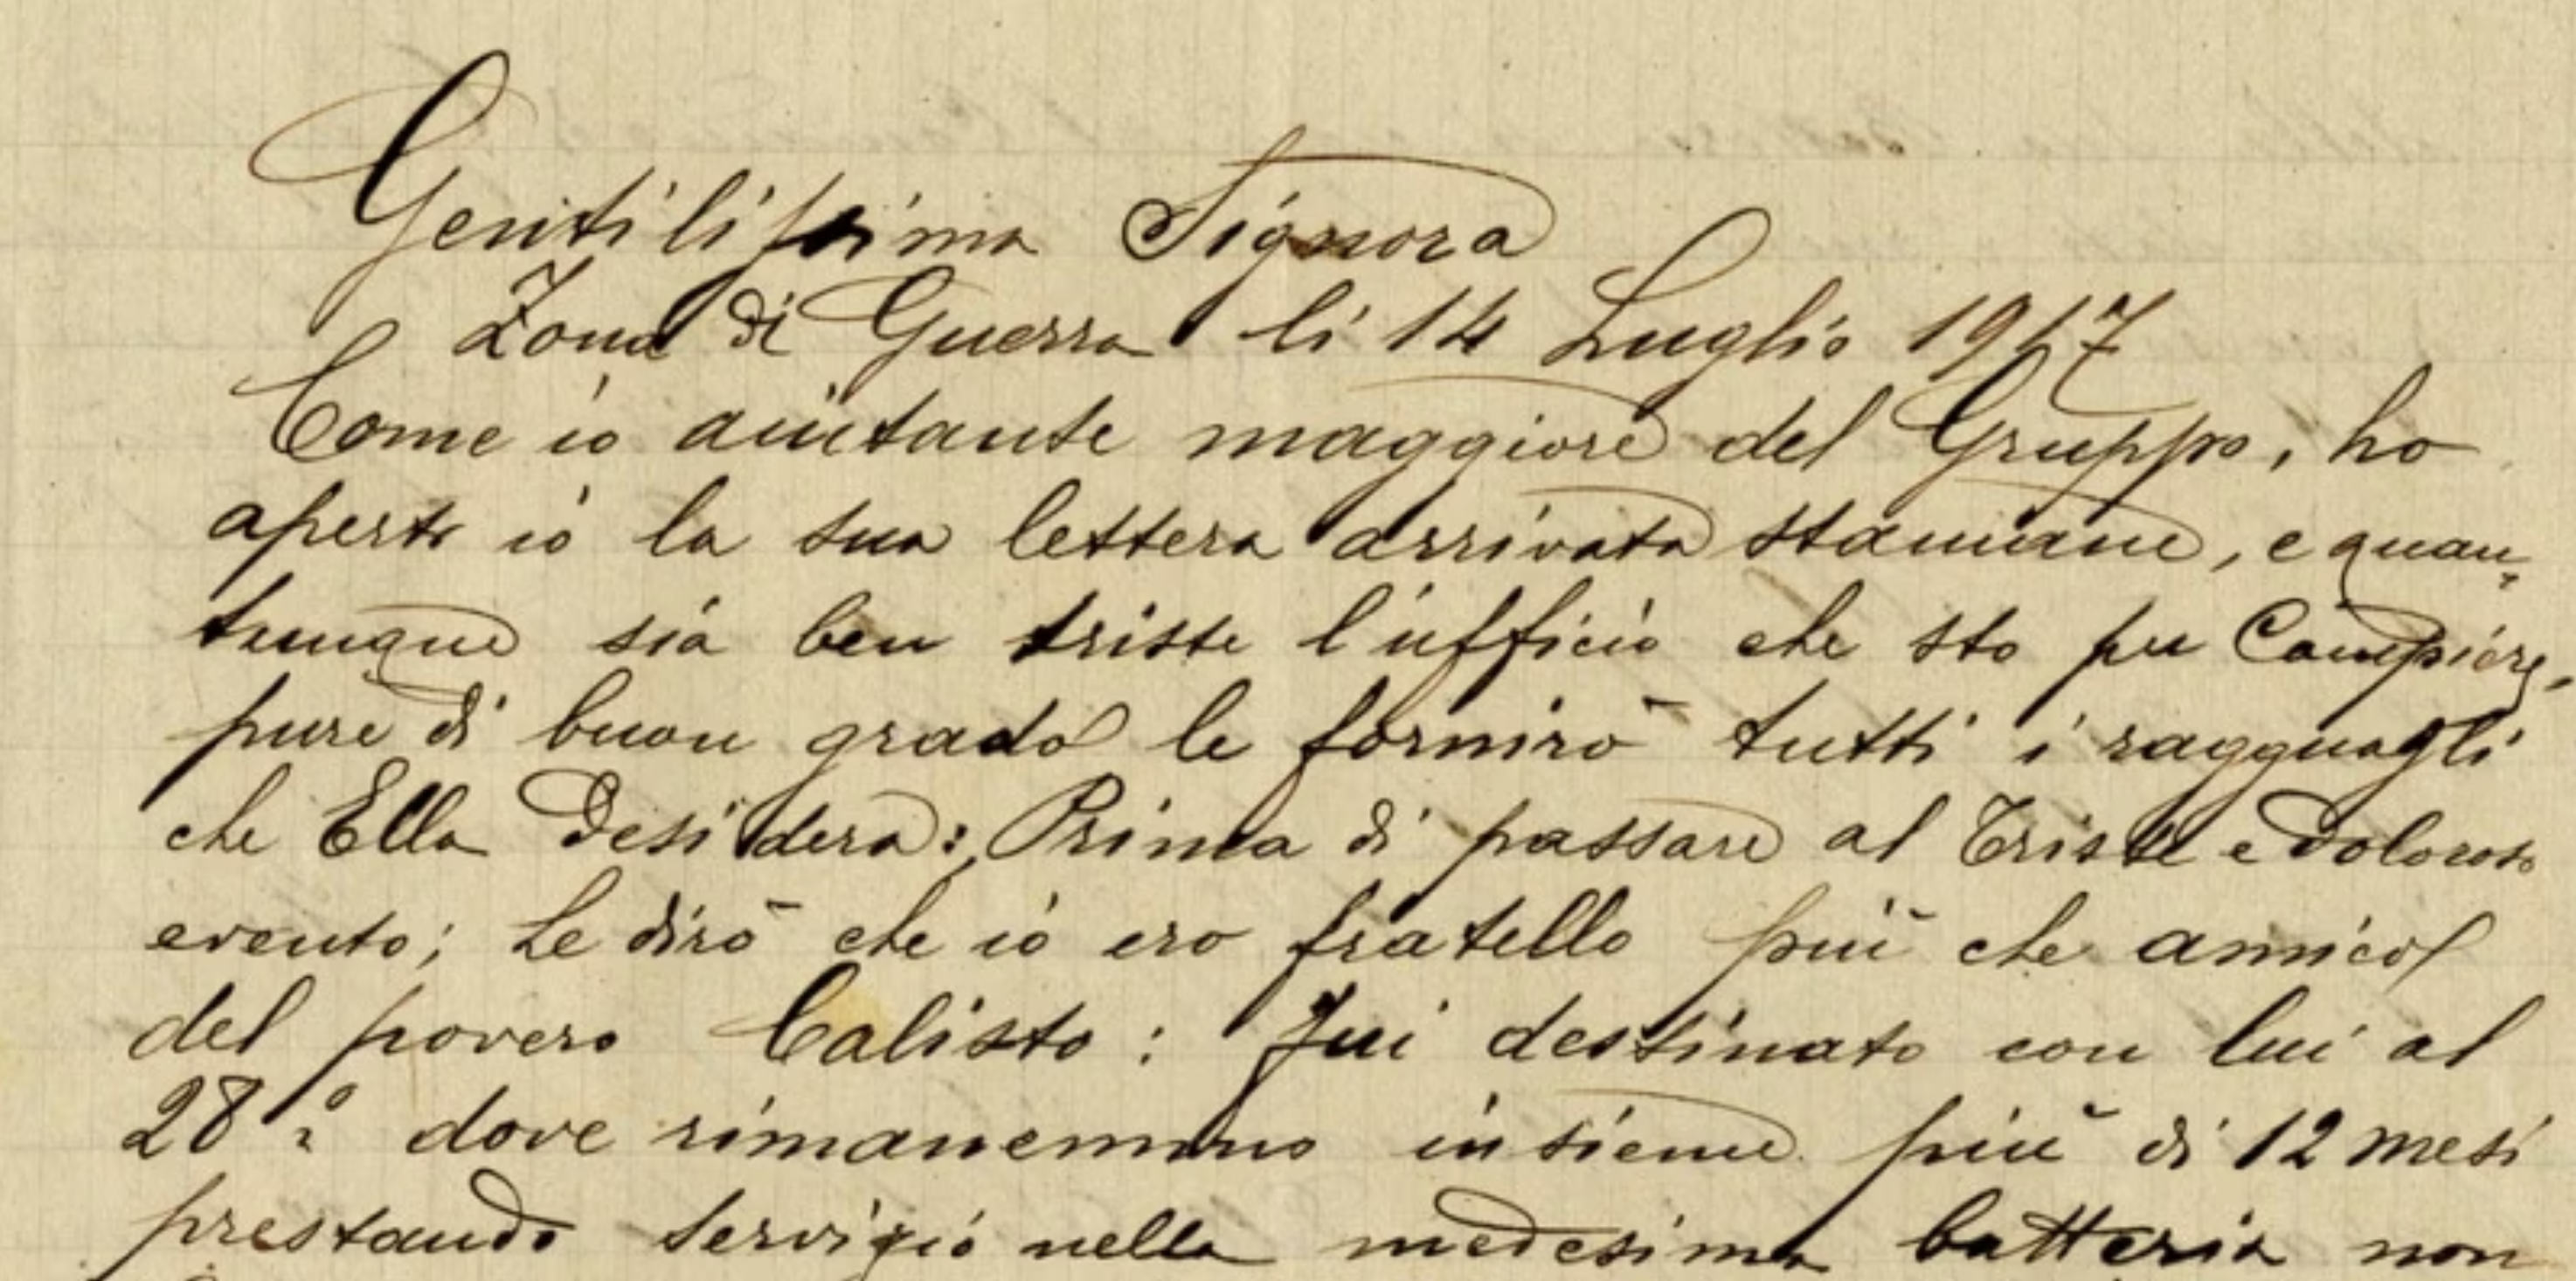 Gentilissima Signora
Zona di Guerra li 14 Luglio 1917
Come io aiutante maggiore del Gruppo, ho
aperto io la sua lettera arrivata stamane, e quan„
tunque sia ben triste l'ufficio che sto per compiere,
pure di buon grado le fornirò tutti i ragguagli
che Ella desidera: Prima di passare al triste e doloroso
evento; Le dirò che io ero fratello più che amico
del povero Calisto: Fui destinato con lui al
28º dove rimanemmo insieme più di 12 mesi
prestando servizio nella medesima batteria non